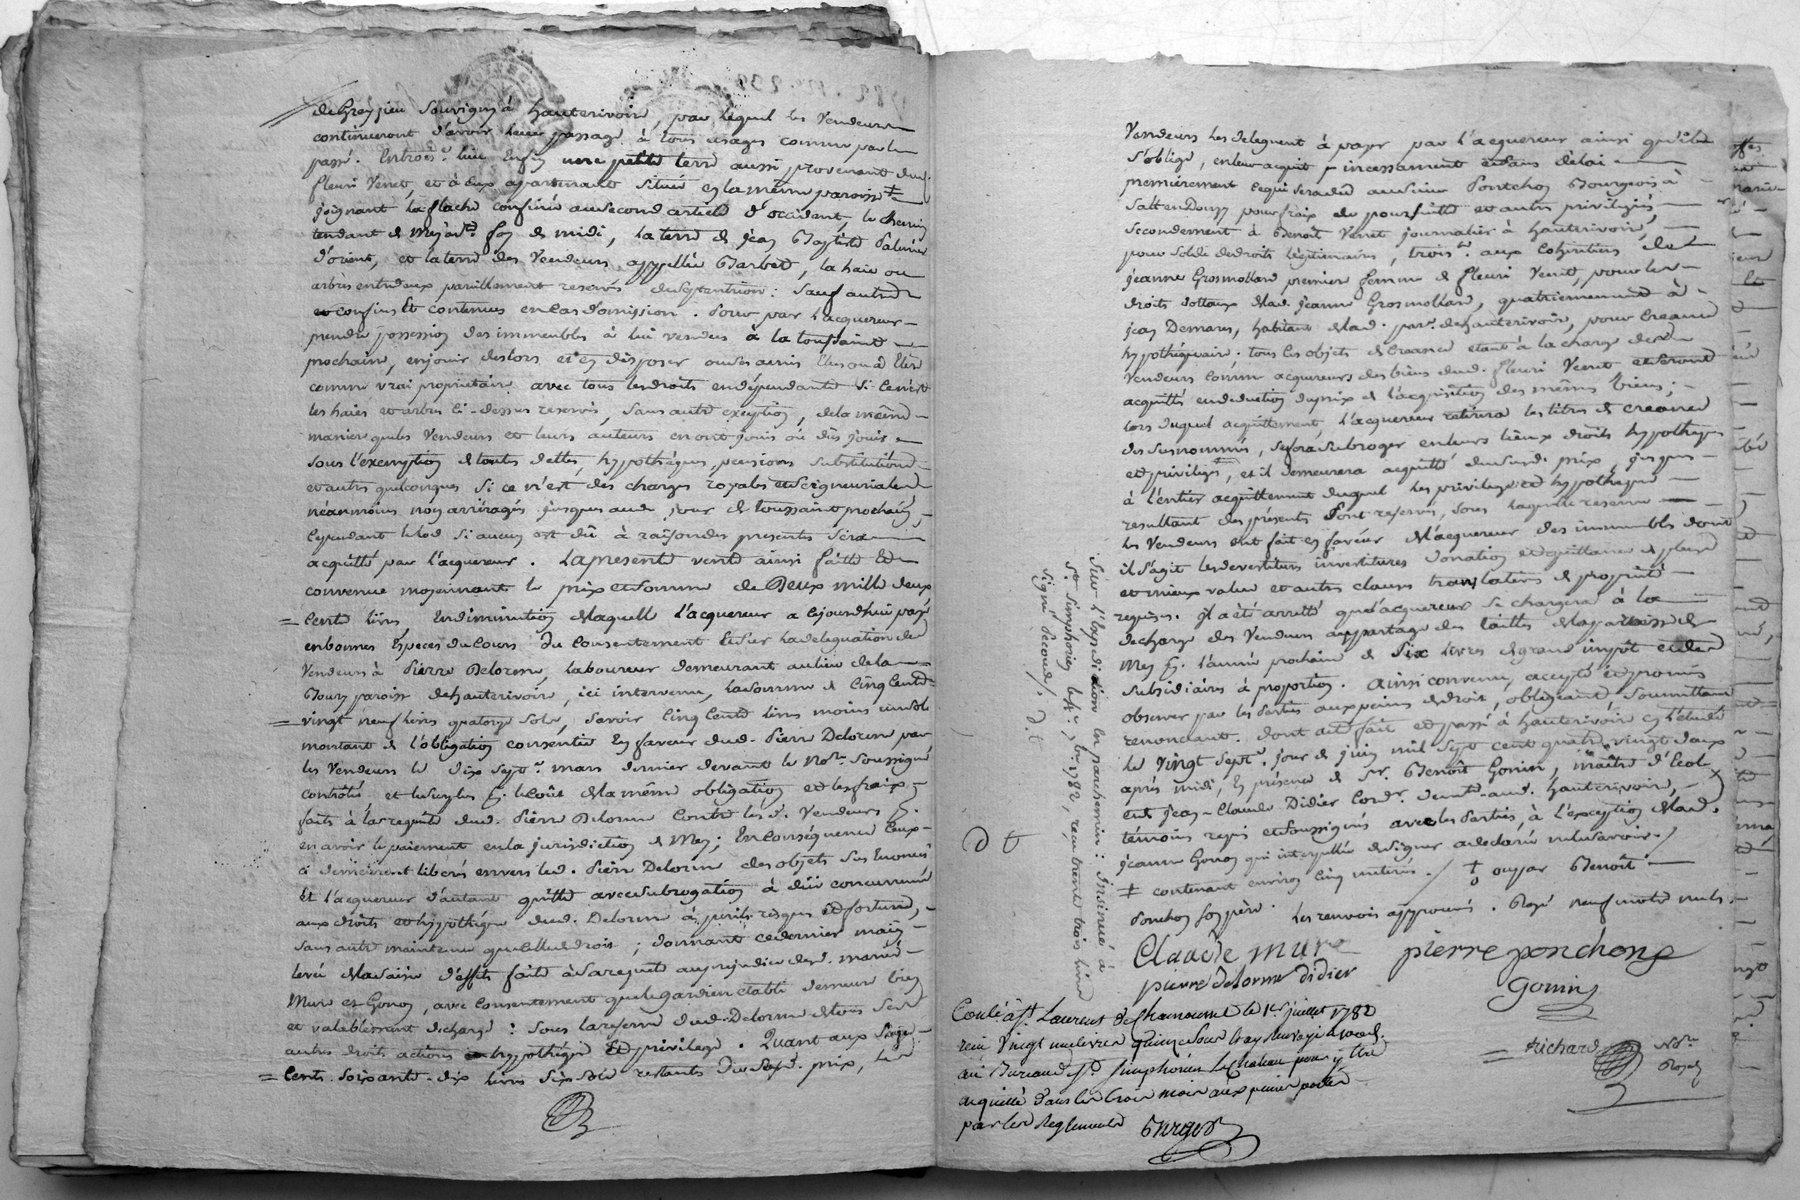 de Grezieu Souvigny à hauterivoire, par lequel les Vendeurs
continueront d'avoir leur passage à tous usages comme par le
passé. Entrois.e lieu Enfin une petite terre aussi provenant dud.
fleuri Venet, et à Eux apartenante située en la même paroisse
joignant la flache confinée au second article d'occident, le chemin
tendant de Meys à foy de midi, la terre de jean Baptiste
d'orient, et la terre des Vendeurs appellée Barbet, la haie ou
arbres entredeux pareillement reservés du Septentrion : Sauf autres
confins Et contenues en cas d'omission. Pour par l'acquereur
prendre possession des immeubles à lui vendus à la toussaint
prochaine, en jouir deslors et en disposer
comme vrai propriétaire avec tous les droits en dépendants si ce n'est
les haies et arbres ci-dessus reservés, sans autre exception, de la même
maniere que les Vendeurs et leurs auteurs en ont joui ou dû jouir
sous l'exemption de toutes dettes, hypothèques, pensions substitutions
et autres quelconques si ce n'est des charges royales et Seigneuriales
néanmoins non arréragés jusques aud. jour de toussaint prochain,
Cependant le lod si aucun est dû à raison des presentes sera
acquitté par l'acquereur. La presente vente ainsi faitte Et
convenue moyennant le prix et somme de Deux mille deux
= Cents livres, En diminution de laquelle l'acquereur a cejourdhui payé
en bonnes Especes du Cours du Consentement Et sur la délégation des
Vendeurs à Pierre Delorme, laboureur demeurant au lieu de la
Boury paroisse de hauterivoire, ici intervenu, la somme de Cinq Cents
= vingt neuf livres quatorze sols, Savoir Cinq Cents livres moins un sol
montant de l'obligation consentie En faveur dud. Pierre Delorme par
les Vendeurs le dix sept.e mars dernier devant le No.re soussigné
contrôlée et le surplus p.r le Coût de la même obligation et les fraix
faits à la requête dud. Pierre Delorme Contre les d. Vendeurs p.r
en avoir le paiement en la jurisdiction de Meys; En Conséquence Ceux-
ci demeurent libérés envers led. Pierre Delorme des objets sus Enoncés
Et l'acquereur d'autant quitte avec subrogation à dûe concurrence
aux droits et hypothèque dud. Delorme à ses perils risques et fortune,
sans autre maintenue quelle du droit; donnant ce dernier main-
levée de la saisie d'effets faite à sa requête au préjudice desd. mariés
Mure et Gonon, avec Consentement que le gardien établi demeure bien
et valablement déchargé : Sous la reserve dud. Delorme de tous ses
autres droits actions hypothèque et privilege. Quant aux Seize
= Cents soixante-dix livres six sols restants du susd. prix, les
Vendeurs les deleguent à payer par l'acquereur ainsi qu'il
s'oblige, en leur acquit incessament et sans délai
premièrement ce qui sera dû au sieur Ponchon Bourgeois à
Salt en Donzy pour fraix de poursuitte et autres privilégiés,
secondement à Benoît Venet journalier à hauterivoire,
pour solde de droits légitimaires, trois.t aux cohéritiers de
jeanne Grosmollard premiere femme de fleuri Venet, pour les
droits dottaux de lad. jeanne Grosmollard, quatriemement à
jean Demares, habitant de lad. par.e de hauterivoire, pour Creance
hypothéquaire. tous les objets de Creance etant à la charge desd.
Vendeurs comme acquereurs des biens dud. fleuri Venet et seront
acquittés en déduction du prix de l'acquisition des mêmes biens;
lors duquel acquittement, l'acquereur retirera les titres de creance
des susnommés, se fera subroger en leurs lieux droits hypothèques
et privileges, et il demeurera acquitté du susd. prix, jusques
à l'entier acquittement duquel les privileges et hypothèque
resultant des présentes sont reservés, sous laquelle reserve
les Vendeurs ont fait en faveur de l'acquereur des immeubles dont
il s'agit les devestitures investitures donation et quittance de plus
et mieux value et autres clauses translatives de propriété
requises. Il a été arretté que l'acquereur se chargera à la
decharge des Vendeurs au partage des tailles de la paroisse de
Meys p.r l'année prochaine de Six livres de grand impôt et des
subsidiaires à proportion. Ainsi convenu, accepté et promis
observer par les Parties aux peines de droit, obligeant, soumettant
renonçant. Dont acte fait et passé à hauterivoire en l'étude
le Vingt Sept.e jour de juin mil sept cent quatre vingt deux
après midi, En présence de S.r Benoît Gonin, maître d'Ecole
et de jean-Claude Didier Cord.r demt. aud. hauterivoire,
témoins requis et soussignés avec les Parties, à l'exception de lad.
jeanne Gonon qui interpellée de signer a declaré ne le savoir./
‡ contenant environ Cinq meterées. / ‡ ou par Benoît
Ponchon son père. Les renvois approuvés. Rayé neuf mots nuls.
Claude mure pierre ponchon
pierre delorme didier
gonin
= Richard No.re Royal
Conté à St. Laurent de Chamousset le 1er juillet 1782
reçu Vingt une livres quinze sols
au Bureau St. Simphorien le Chateau pour y être
acquitté dans les trois mois aux peines portées
par les Reglements
Sur l'Expedition En parchemin : Insinué à
St. Simphorien le Ch.au 7bre 1782, reçu trente trois livres
Signé Secoud/. d. t
d t